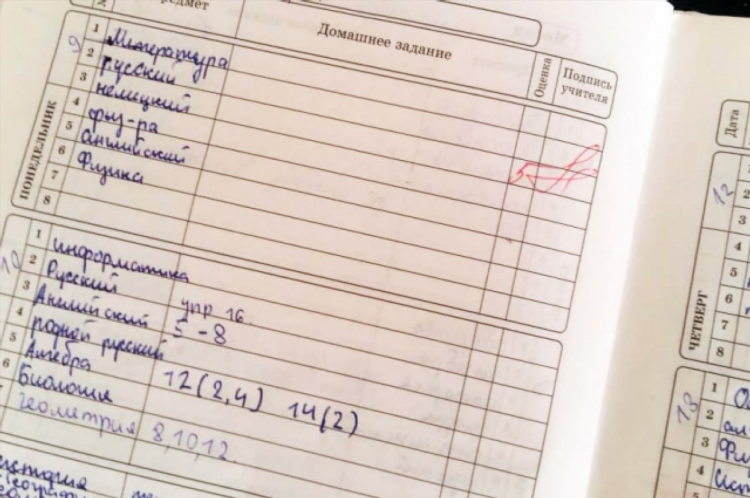 предмет
Домашнее задание
Оценка
Подпись учителя
9
ПОНЕДЕЛЬНИК
1 Литература
2 Русский
3 немецкий
4 физ-ра
5 английский
6 Физика
7
8
5
10
1 информатика
2 Русский упр 16.
3 Английский 5-8
4 родной русский
5 Алгебра 12(2,4) 14(2)
6 Биология
геометрия 8,10,12.
история
Дата
12
ЧЕТВЕРГ
1
2
3
4
5
6
7
8
13
1
2 ал
3 Фи
4 ист